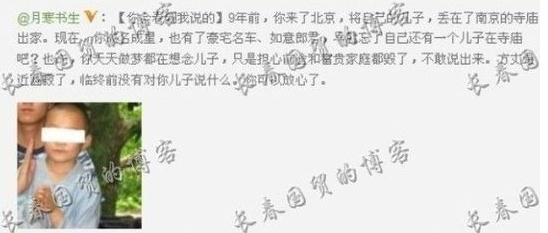 @月寒书生 V：【 我说的】9年前，你来了北京，将自己的儿子，丢在了南京的寺庙
出家。现在，你 名 里，也有了豪宅名车、如意郎君， 忘了自己还有一个儿子在寺庙
吧？也许，你天天做梦都在想念儿子，只是担心 和富贵家庭都毁了，不敢说出来。方丈
近 了，临终前没有对你儿子说什么。你可以放心了。
长春国贸的博客
长春国贸的博客
长春国贸的博客
长春国贸的博客